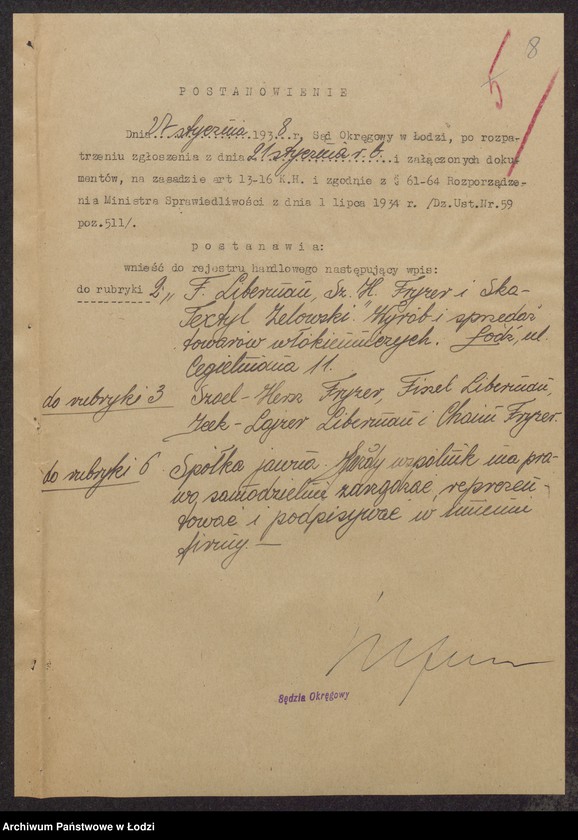 8
5
POSTANOWIENIE
Dnia 27 stycznia 1938 r. Sąd Okręgowy w Łodzi, po rozpa-
trzeniu zgłoszenia z dnia 21 stycznia r.b. i załączonych doku-
mentów, na zasadzie art 13-16 K.H. i zgodnie z § 61-64 Rozporządze-
nia Ministra Sprawiedliwości z dnia 1 lipca 1934 r. /Dz.Ust.Nr.59
poz.511/.
postanawia:
wnieść do rejestru handlowego następujący wpis:
do rubryki 2 „F. Liberman, Sz. H. Fryzer i Ska-
Textyl Zelowski" Wyrób i sprzedaż
towarów włókienniczych. Łódź, ul.
Cegielniana 11.
do rubryki 3 Szael-Hersz Fryzer, Fiszel Liberman,
Icek-Lajzer Liberman i Chaim Fryzer.
do rubryki 6 Spółka jawna. Każdy wspólnik ma pra-
wo samodzielnie zarządzać, reprezen-
tować i podpisywać w imieniu
firmy.—
Sędzia Okręgowy
Archiwum Państwowe w Łodzi